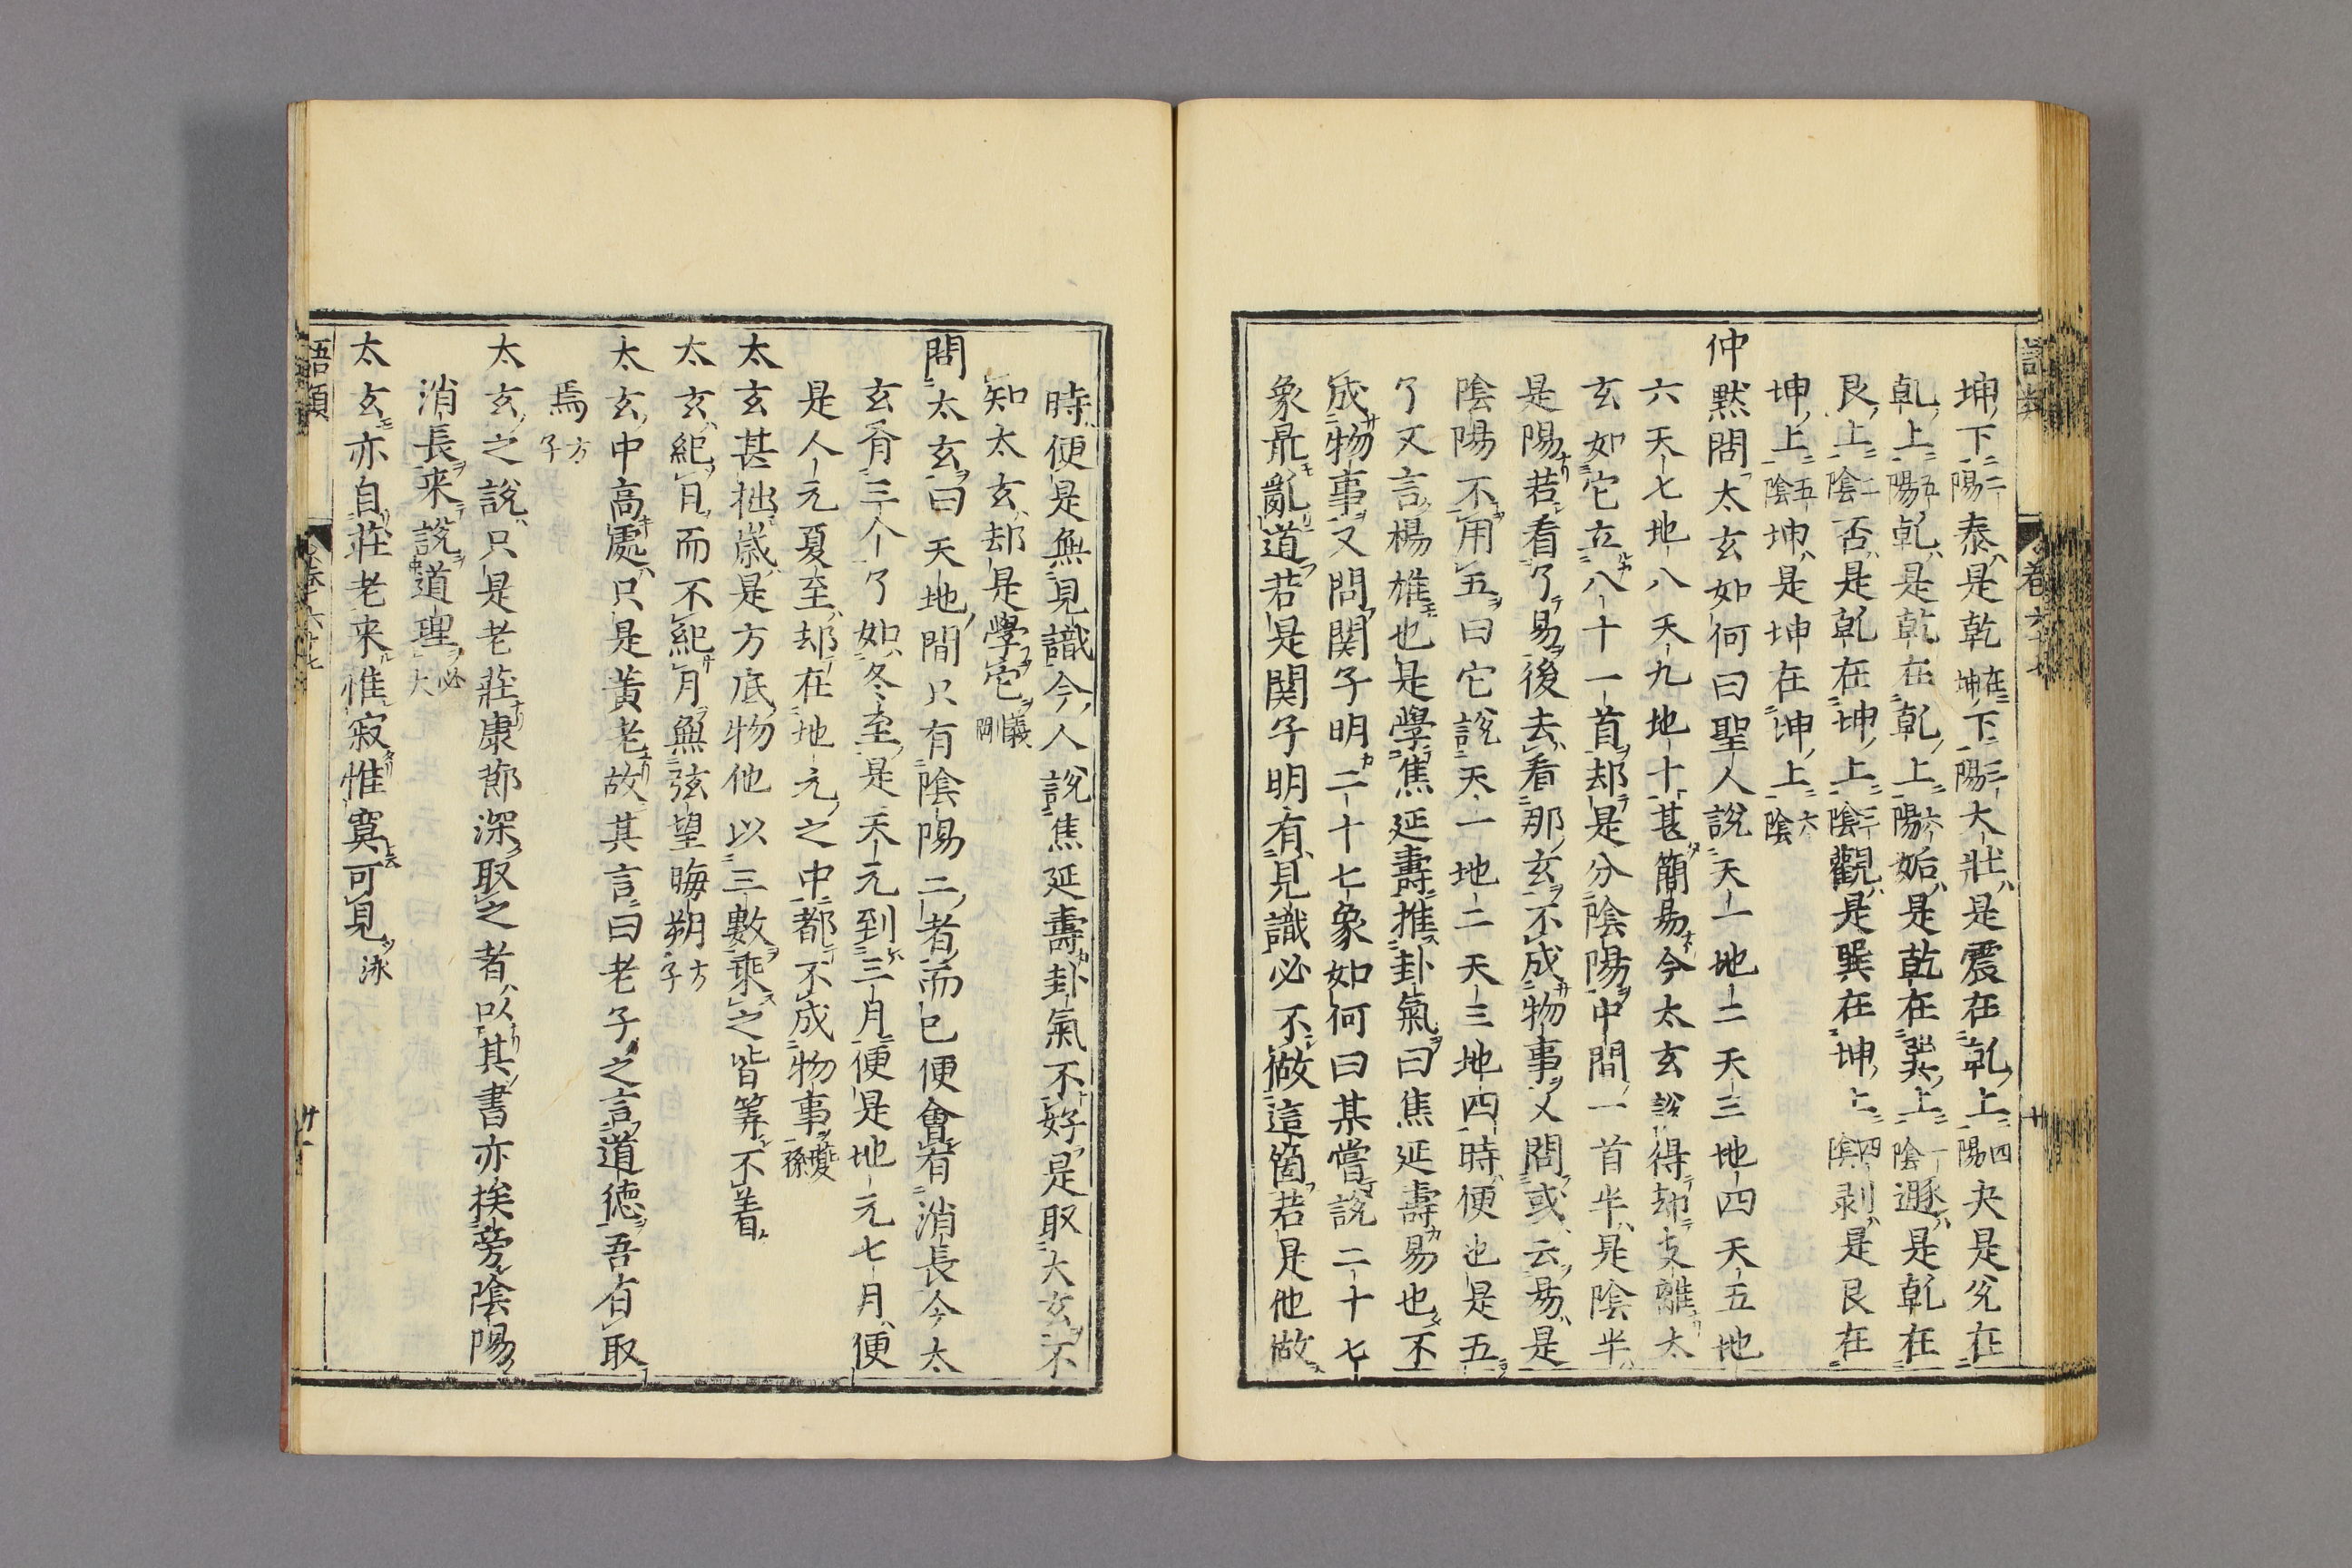 坤下二陽泰是乾在坤下三陽大壯是震在乾上四陽夬是兌在
乾上五陽乾是乾在乾上六陽姤是乾在巽上一陰遯是乾在
艮上二陰否是乾在坤上三陰觀是巽在坤上四陰剥是艮在
坤上五陰坤是坤在坤上六陰
仲默問太玄如何曰聖人說天一地二天三地四天五地
六天七地八天九地十甚簡易今太玄說得却支離太
玄如它立八十一首却是分陰陽中間一首半是陰半
是陽若看了易後去看那玄不成物事又問或云易是
陰陽不用五曰它說天一地二天三地四時便也是五
了又言楊雄也是學焦延壽推卦氣曰焦延壽易也不
成物事又問関子明二十七象如何曰某嘗說二十七
象最亂道若是関子明有見識必不做這箇若是他做
時便是無見識今人說焦延壽卦氣不好是取太玄不
知太玄却是學它義剛
問太玄曰天地間只有陰陽二者而已便會有消長今太
玄有三个了如冬至是天元到三月便是地元七月便
是人元夏至却在地元之中都不成物事夔孫
太玄甚拙歲是方底物他以三數乘之皆筭不着
太玄紀日而不紀月無弦望晦朔方子
太玄中高處只是黃老故其言曰老子之言道德吾有取
焉方子
太玄之說只是老莊康節深取之者以其書亦挨旁陰陽
消長来說道理必大
太玄亦自莊老来惟寂惟寞可見泳
語類
卷六十七
廿一